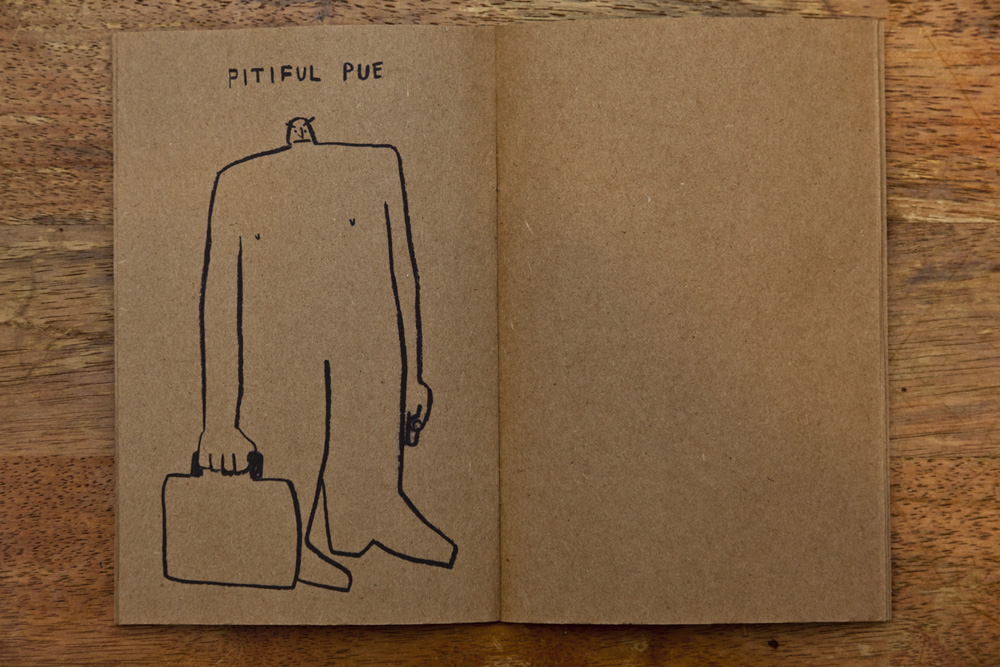 PITIFUL PUE